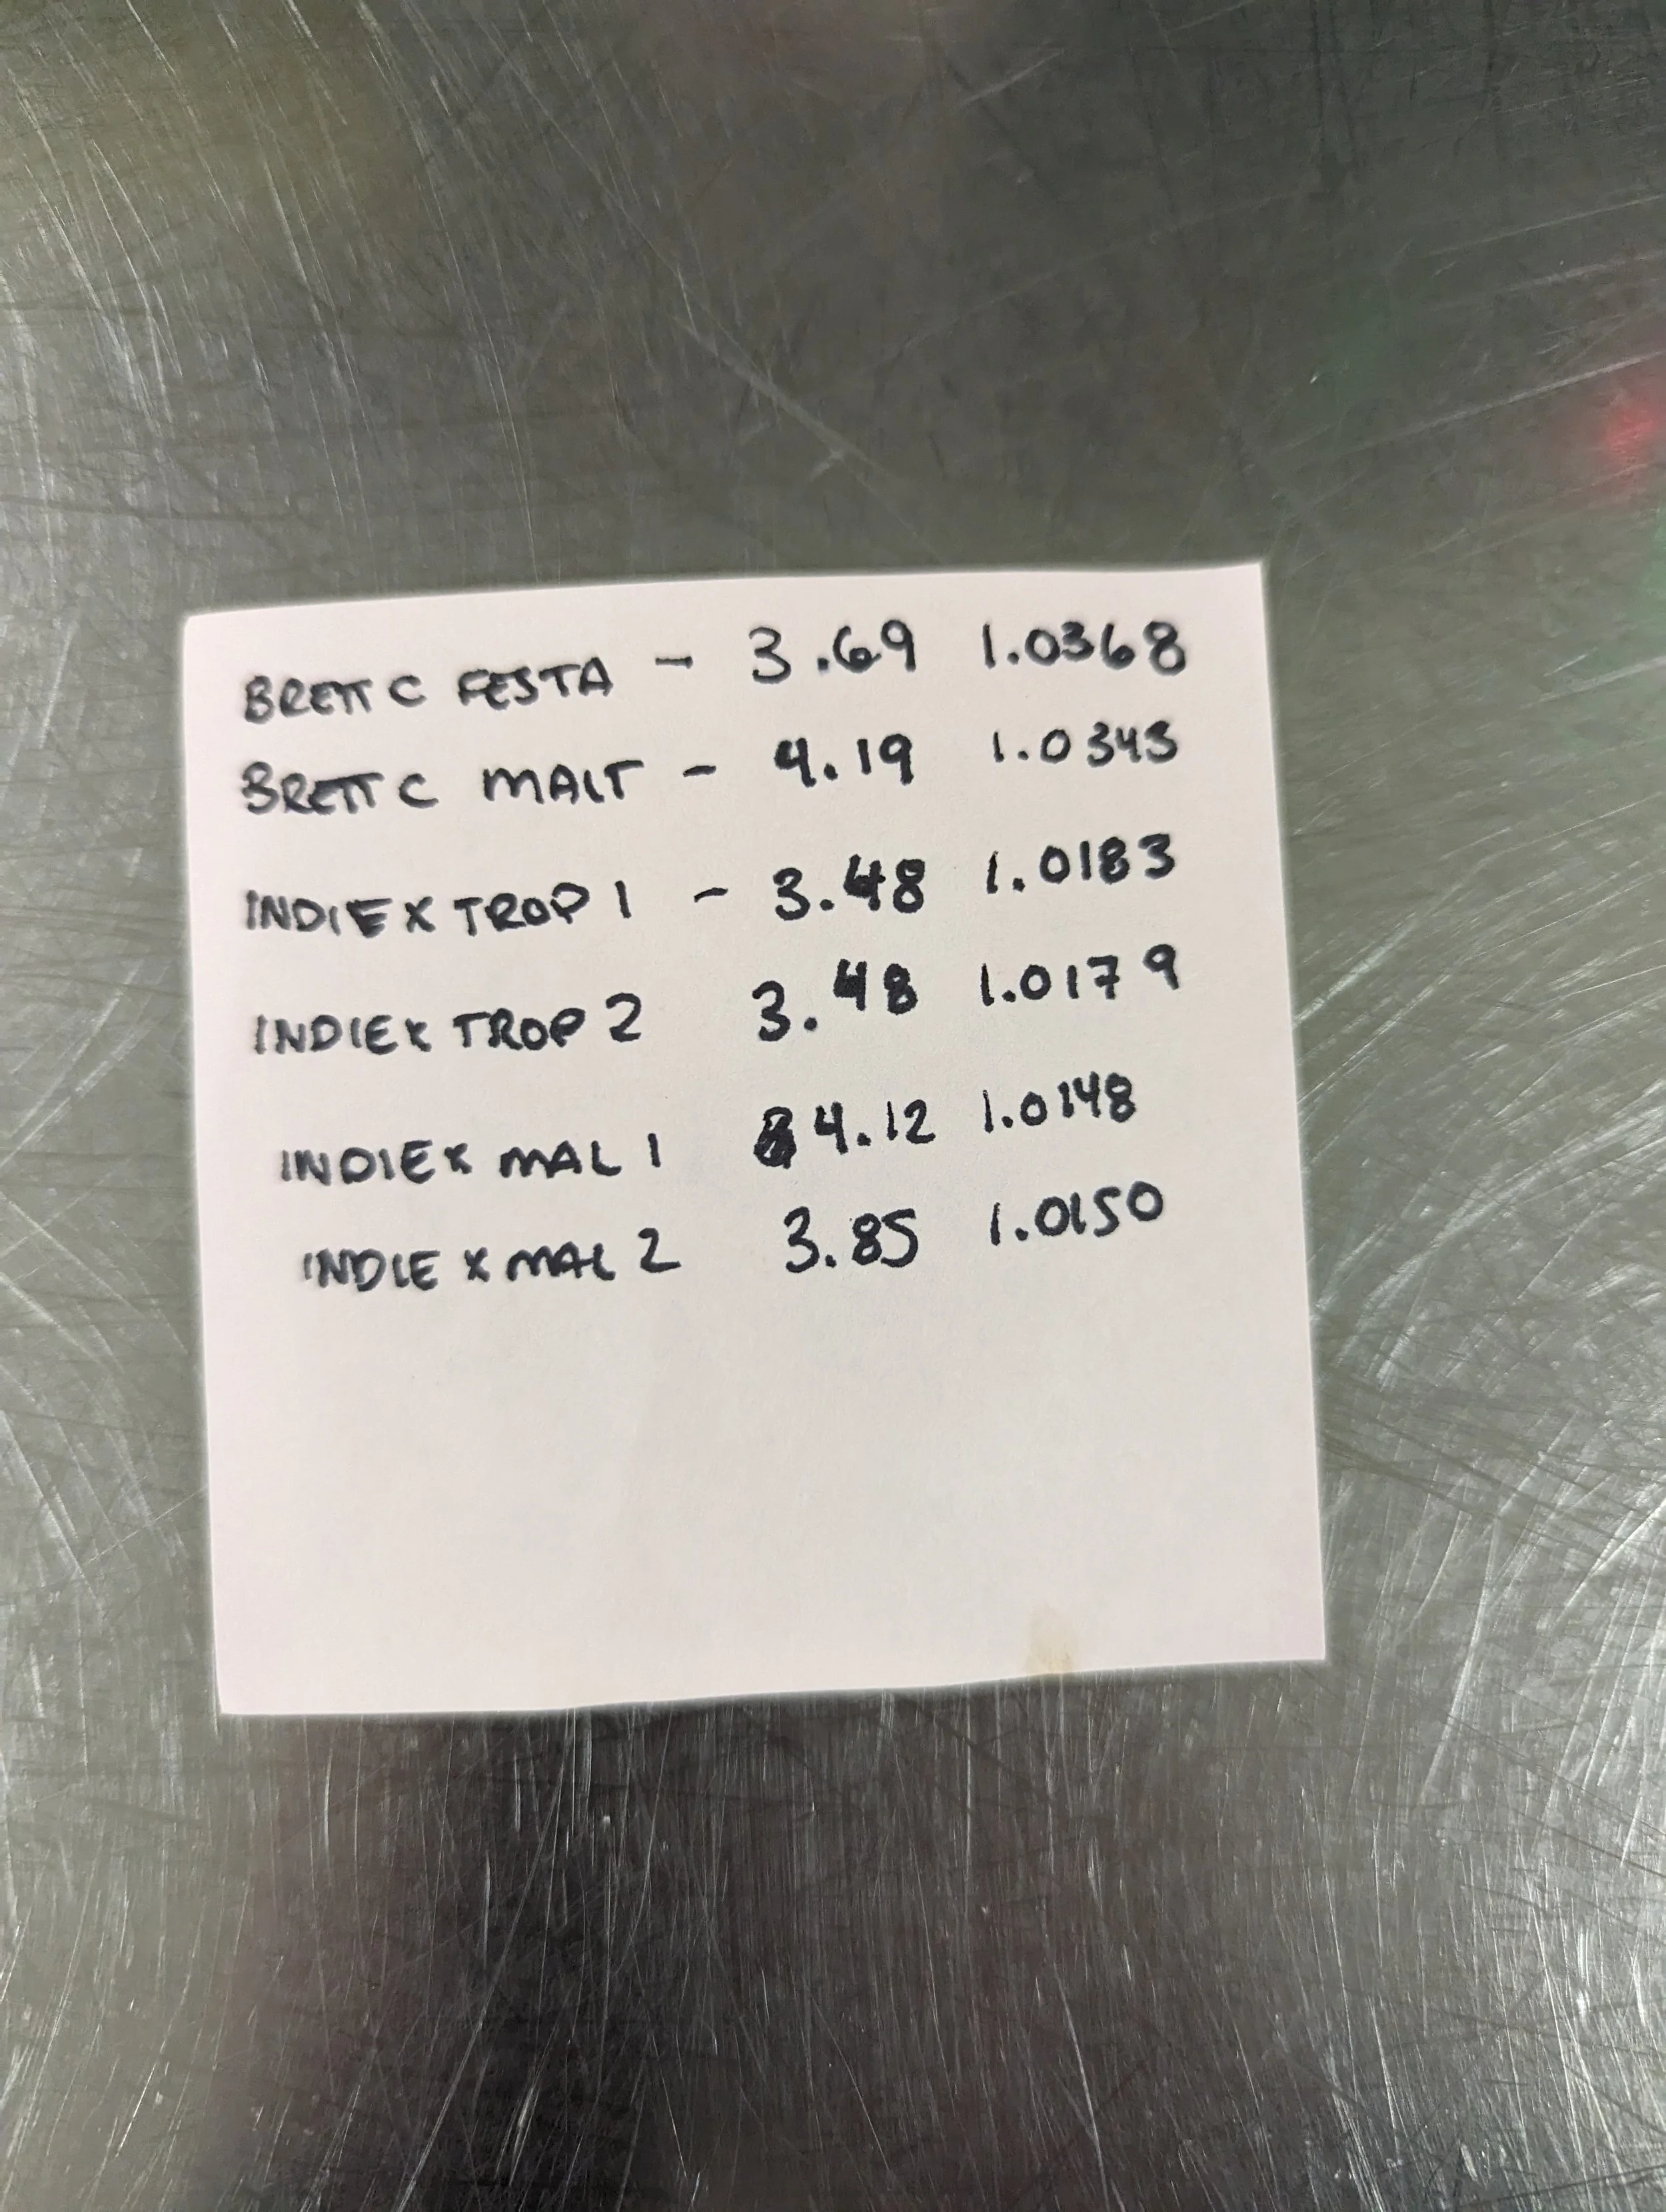 BRETT C FESTA - 3.69 1.0368
BRETT C MALT - 4.19 1.0343
INDIE X TROP 1 - 3.48 1.0183
INDIE X TROP 2 3.48 1.0179
INDIE X MAL 1 4.12 1.0148
INDIE X MAL 2 3.85 1.0150